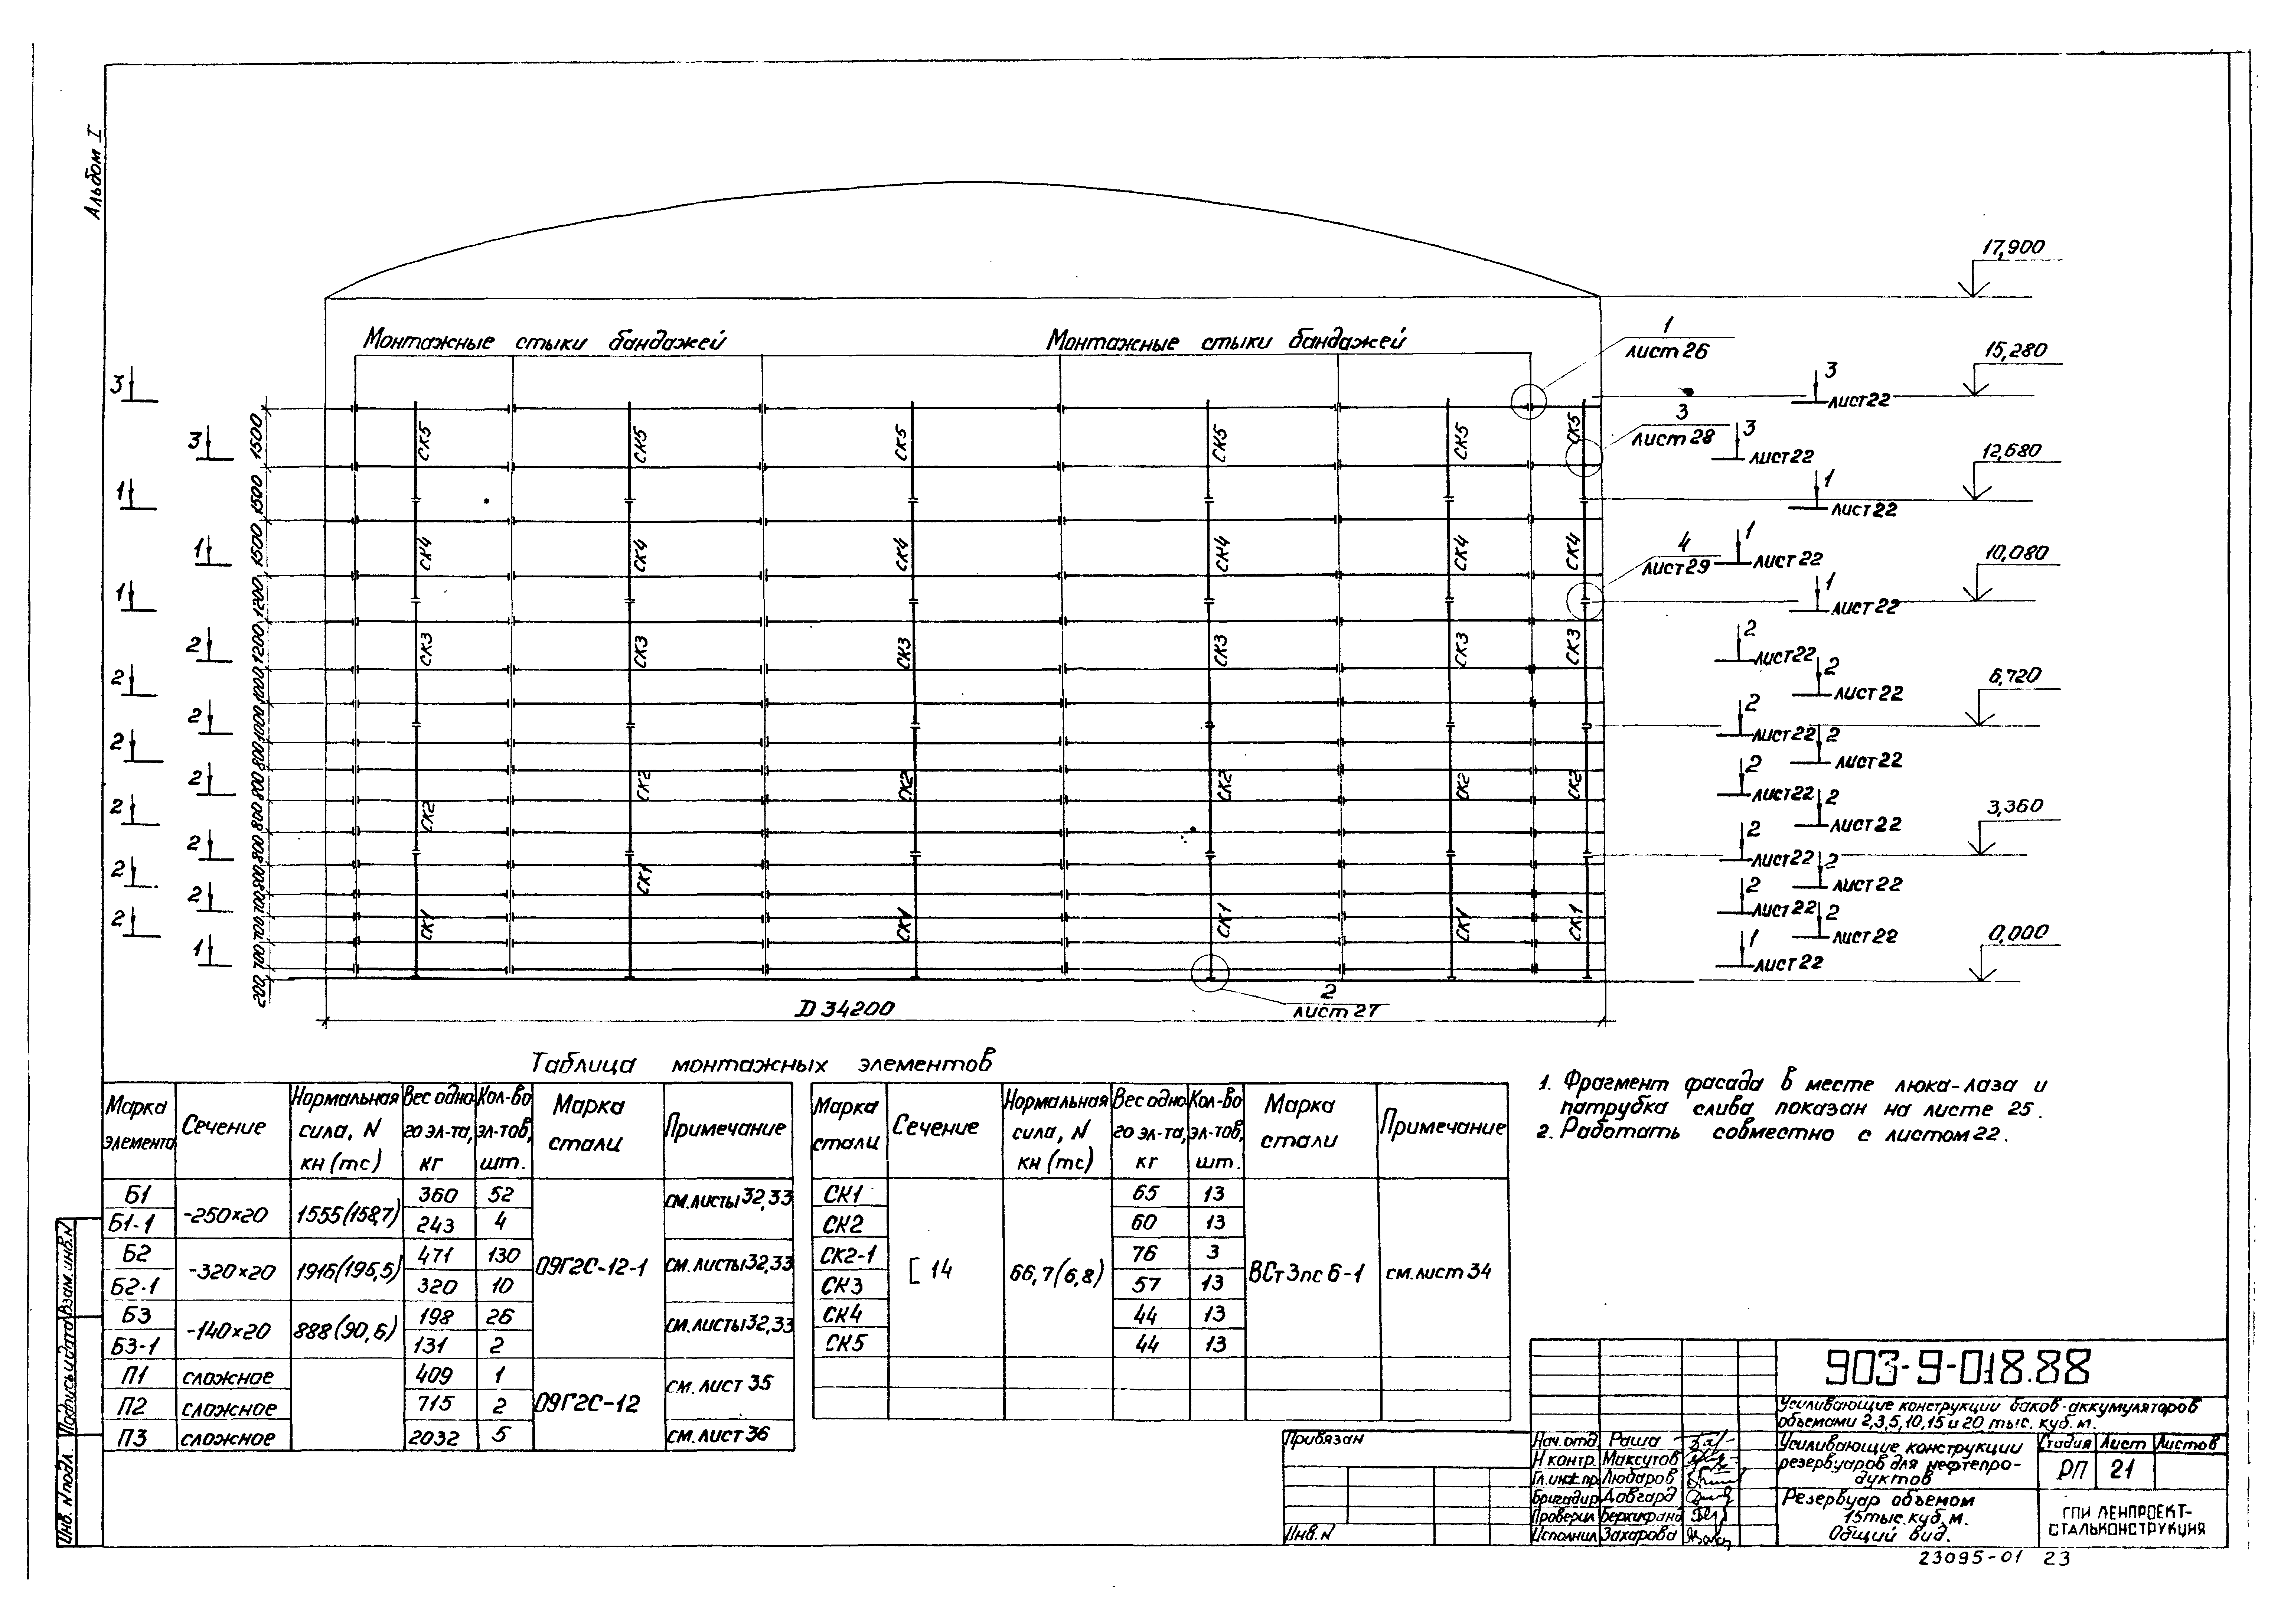 Альбом I
17,900
Монтажные стыки бандажей
Монтажные стыки бандажей
1
лист 26
15,280
3
3
лист 22
3
лист 28
3
3
лист 22
12,680
1
1
лист 22
1
1
лист 22
4
лист 29
10,080
1
1
лист 22
2
2
лист 22
6,720
2
2
лист 22
2
2
лист 22
2
2
лист 22
2
2
лист 22
3,360
2
2
лист 22
2
2
лист 22
2
2
лист 22
2
2
лист 22
2
2
лист 22
0,000
1
1
лист 22
1500
1500
1500
1200
1200
1000
1000
800
800
800
800
800
700
700
700
200
СК5 СК5 СК5 СК5 СК5 СК5
СК4 СК4 СК4 СК4 СК4 СК4
СК3 СК3 СК3 СК3 СК3 СК3
СК2 СК2 СК2 СК2 СК2 СК2
СК1 СК1 СК1 СК1 СК1 СК1
2
лист 27
D 34200
Таблица монтажных элементов
Марка элемента Сечение Нормальная сила, N кн (тс) Вес одного эл-та, кг Кол-во эл-тов, шт. Марка стали Примечание
Б1 -250×20 1555(158,7) 360 52 09Г2С-12-1 см.листы 32,33
Б1-1 243 4
Б2 -320×20 1916(195,5) 471 130 см.листы 32,33
Б2-1 320 10
Б3 -140×20 888(90,6) 198 26 см.листы 32,33
Б3-1 131 2
П1 сложное 409 1 09Г2С-12 см.лист 35
П2 сложное 715 2
П3 сложное 2032 5 см.лист 36
Марка стали Сечение Нормальная сила, N кн (тс) Вес одного эл-та, кг Кол-во эл-тов, шт. Марка стали Примечание
СК1 [ 14 66,7(6,8) 65 13 ВСт3пс6-1 см.лист 34
СК2 60 13
СК2-1 76 3
СК3 57 13
СК4 44 13
СК5 44 13
1. Фрагмент фасада в месте люка-лаза и
патрубка слива показан на листе 25.
2. Работать совместно с листом 22.
903-9-018.88
Усиливающие конструкции баков-аккумуляторов
объемами 2,3,5,10,15 и 20 тыс. куб. м.
Усиливающие конструкции
резервуаров для нефтепро-
дуктов
Стадия Лист Листов
РП 21
Резервуар объемом
15 тыс. куб. м.
Общий вид.
ГПИ ЛЕНПРОЕКТ-
СТАЛЬКОНСТРУКЦИЯ
Нач.отд. Раша
Н контр. Максутов
Гл.инж.пр. Любаров
Бригадир Довгард
Проверил
Исполнил Захарова
Привязан
Инв. N
Инв. N подл. Подпись и дата Взам. инв. N
23095-01 23